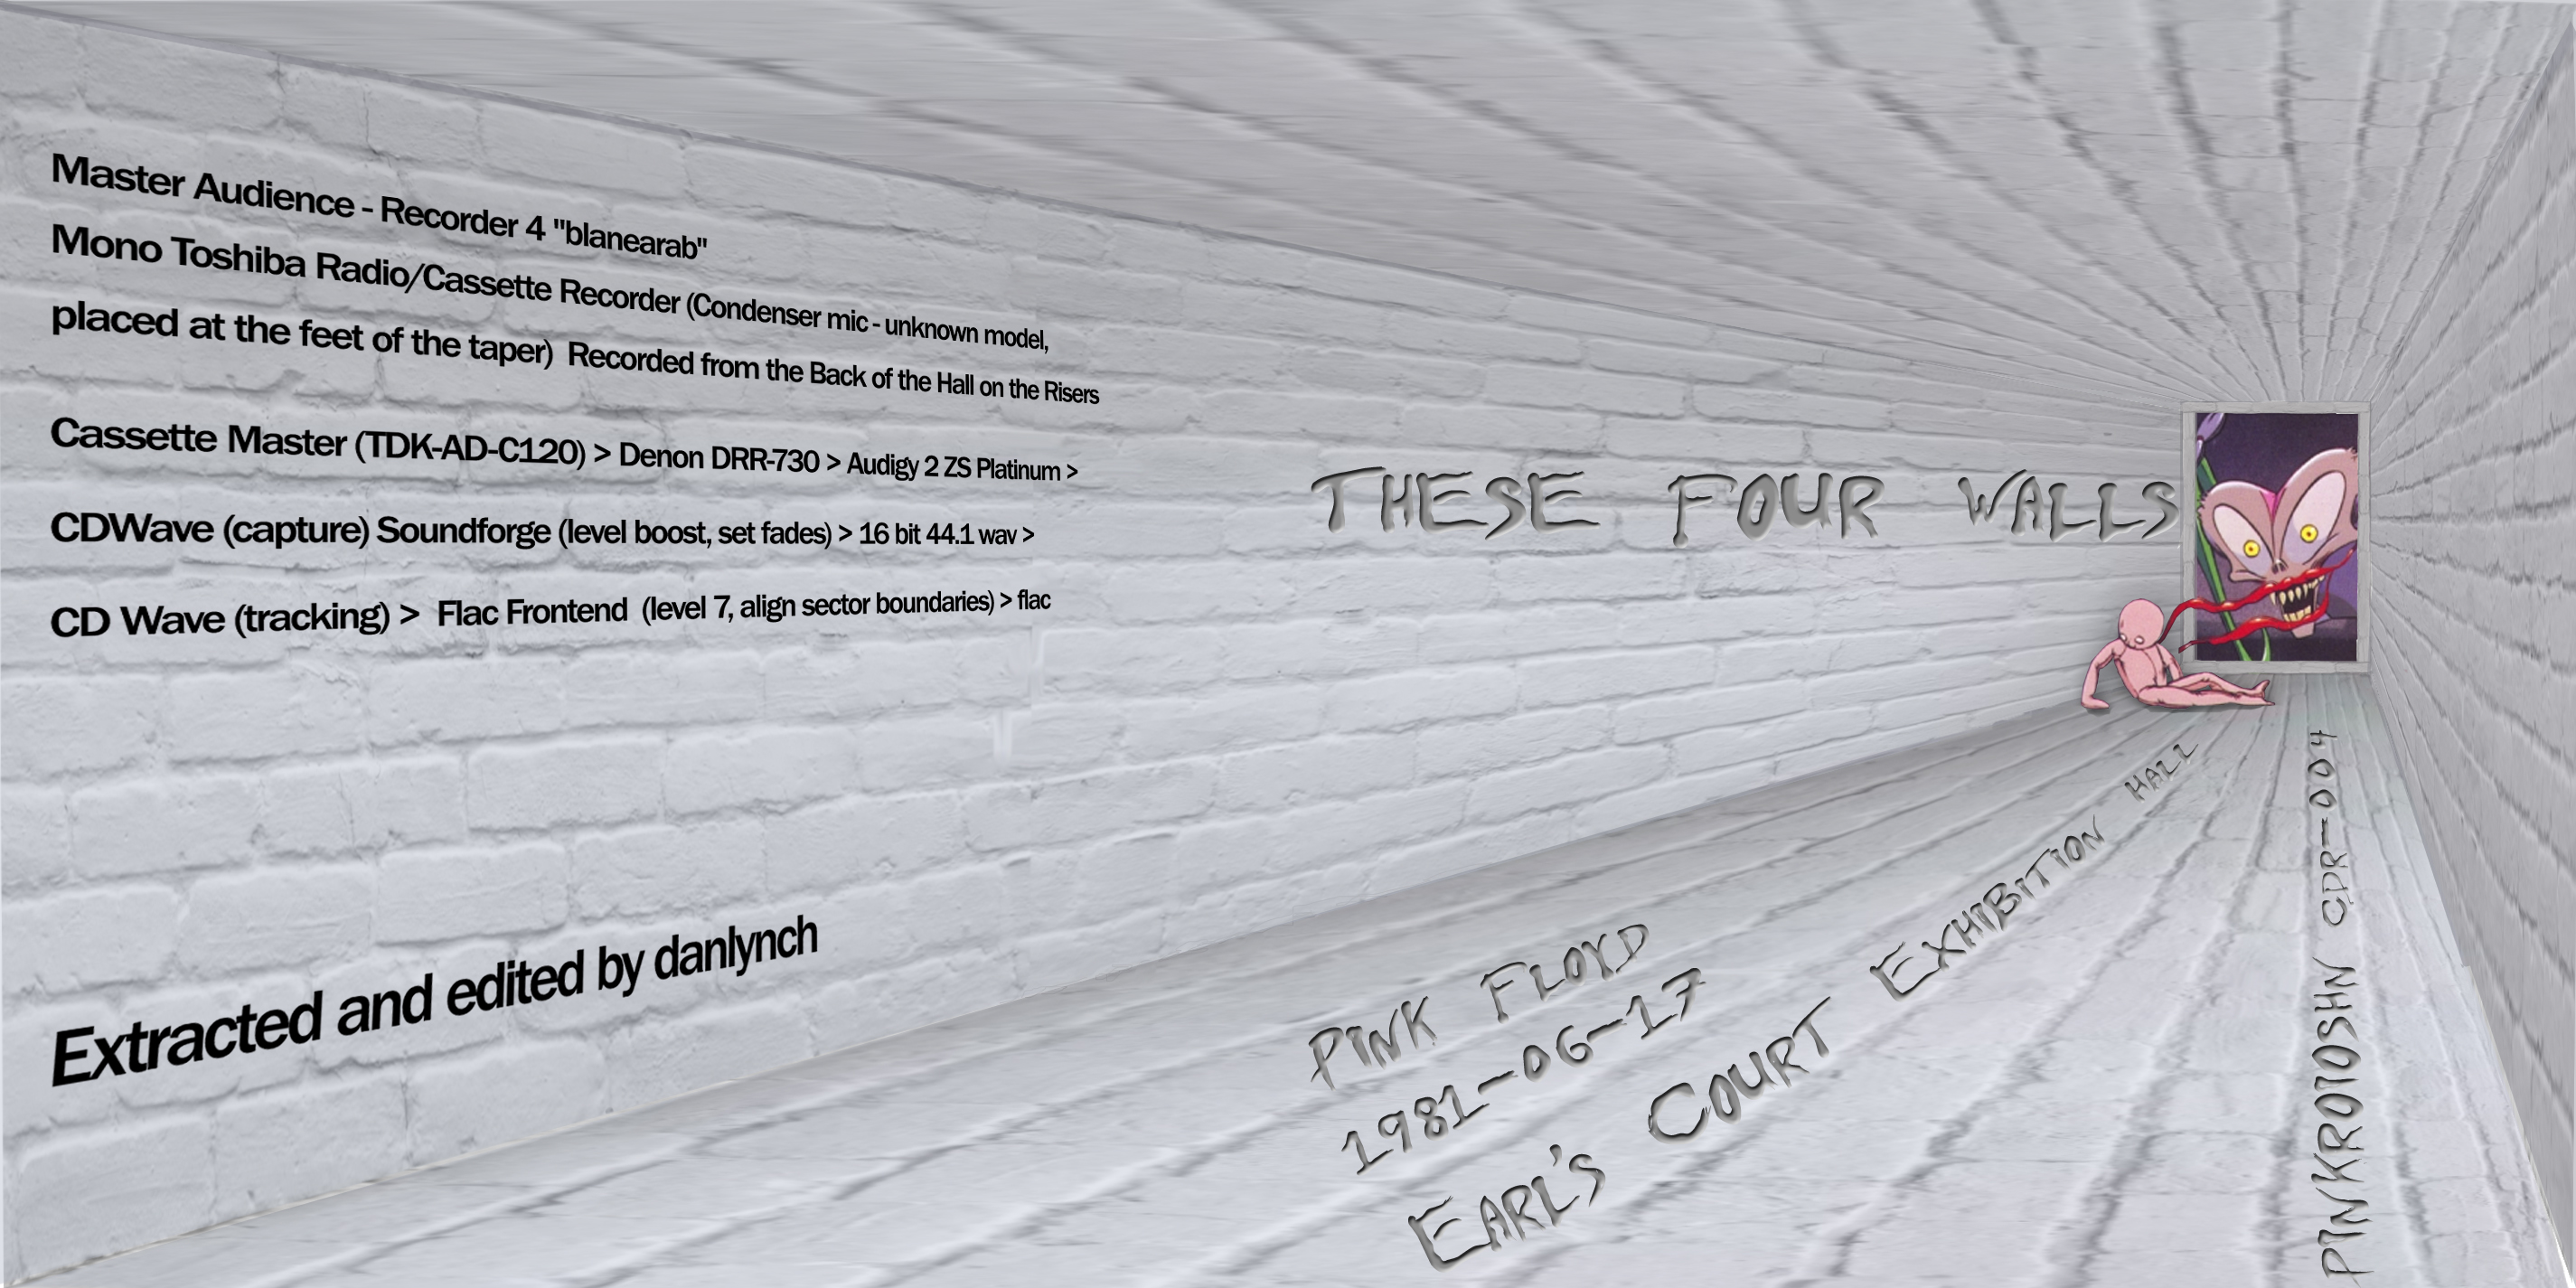 Master Audience - Recorder 4 "blanearab"
Mono Toshiba Radio/Cassette Recorder (Condenser mic - unknown model,
placed at the feet of the taper)  Recorded from the Back of the Hall on the Risers
Cassette Master (TDK-AD-C120) > Denon DRR-730 > Audigy 2 ZS Platinum >
CDWave (capture) Soundforge (level boost, set fades) > 16 bit 44.1 wav >
CD Wave (tracking) >  Flac Frontend  (level 7, align sector boundaries) > flac
Extracted and edited by danlynch
THESE FOUR WALLS
PINK FLOYD
1981-06-17
EARL'S COURT EXHIBITION HALL
CPR-004